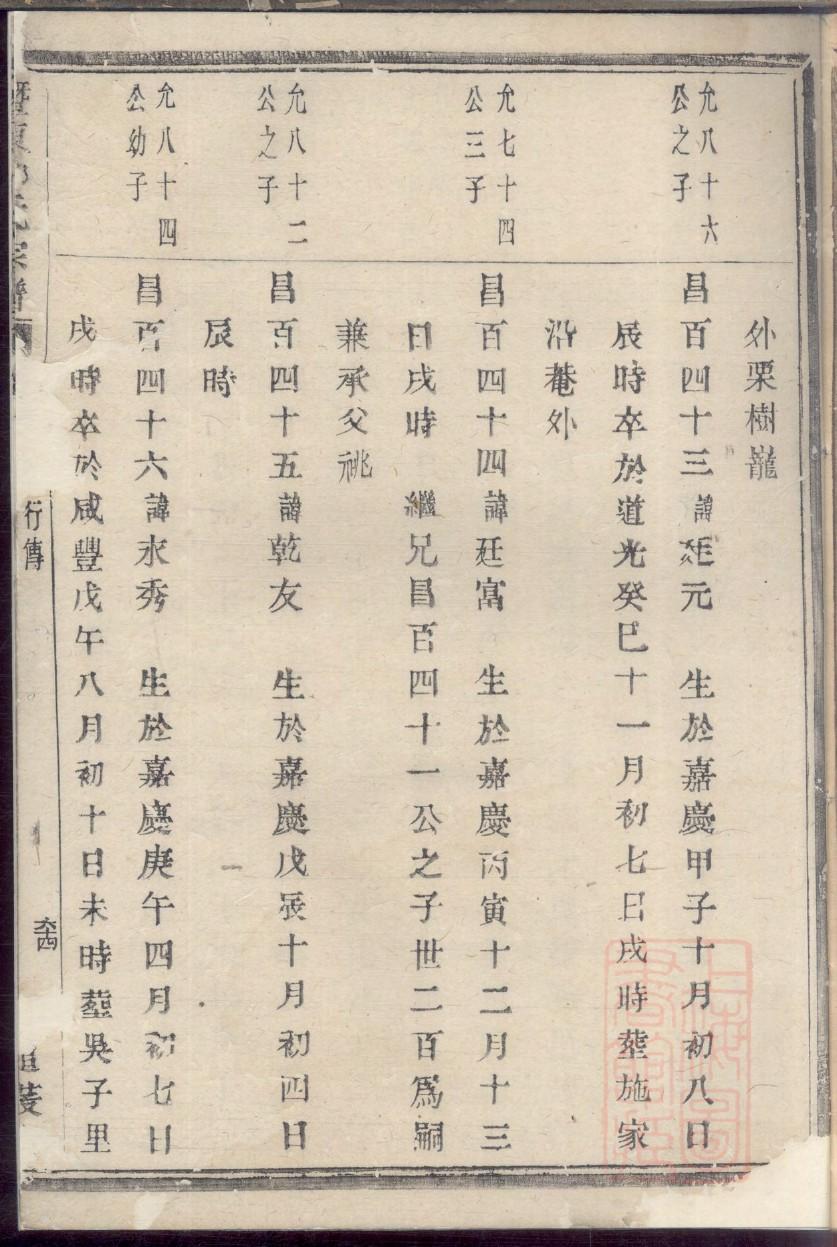 外栗樹巃
允八十六
公之子
昌百四十三諱廷元　生於嘉慶甲子十月初八日
辰時卒於道光癸巳十一月初七日戌時塟施家
沿菴外
允七十四
公三子
昌百四十四諱廷富　生於嘉慶丙寅十二月十三
日戌時　繼兄昌百四十一公之子世二百爲嗣
兼承父祧
允八十二
公之子
昌百四十五諱乾友　生於嘉慶戊辰十月初四日
辰時
允八十四
公幼子
昌百四十六諱永秀　生於嘉慶庚午四月初七日
戌時卒於咸豐戊午八月初十日未時塟吳子里
氏宗譜
行傳